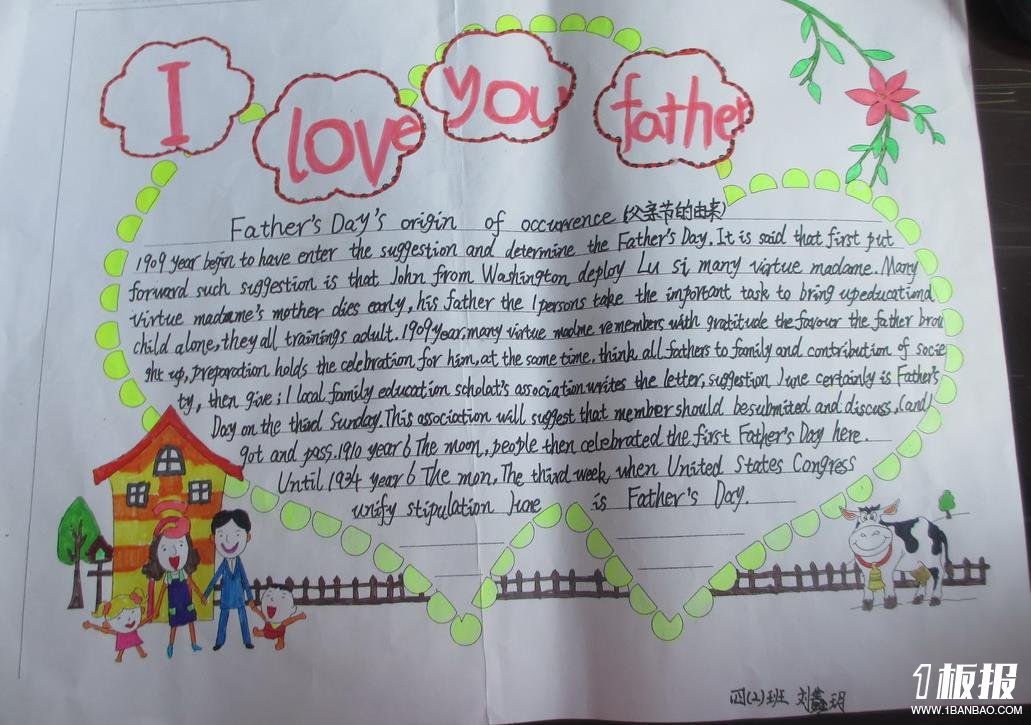 I love you father
Father's Day's origin of occurrence (父亲节的由来)
1909 year begin to have enter the suggestion and determine the Father's Day. It is said that first put
forward such suggestion is that John from Washington deploy Lu si, many virtue madame. Many
virtue madame's mother dies early, his father the 1 persons take the important task to bring up educationd
child alone, they all trainings adult. 1909 year, many virtue madme remembers with gratitude the favour the father brou
ght up, preparation holds the celebration for him, at the same time, think all fathers to family and contribution of socie
ty, then give: 1 local family education scholat's association writes the letter, suggestion June certainly is Father's
Day on the third Sunday. This association will suggest that member should be submited and discuss, (and)
got and pass. 1910 year 6 The moon, people then celebrated the first Father's Day here.
Until 1934 year 6 The mon, The third week, when United States Congress
unify stipulation June is Father's Day.
四(2)班 刘鑫玥
1板报
WWW.1BANBAO.COM